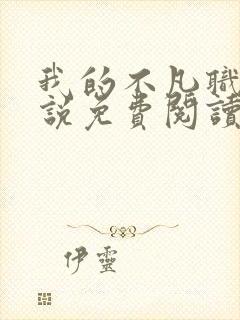 我的不凡職
說免費閱讀
伊靈